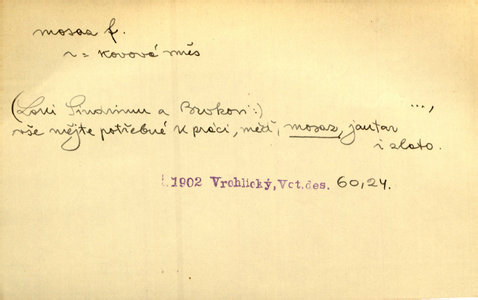 mosaz f.
1 = kovová měs
(Loki Sindrimu a Brokovi:) ...,
vše mějte potřebné k práci, měď, mosaz, jantar
i zlato.
1902 Vrchlický, Vct.des. 60,24.